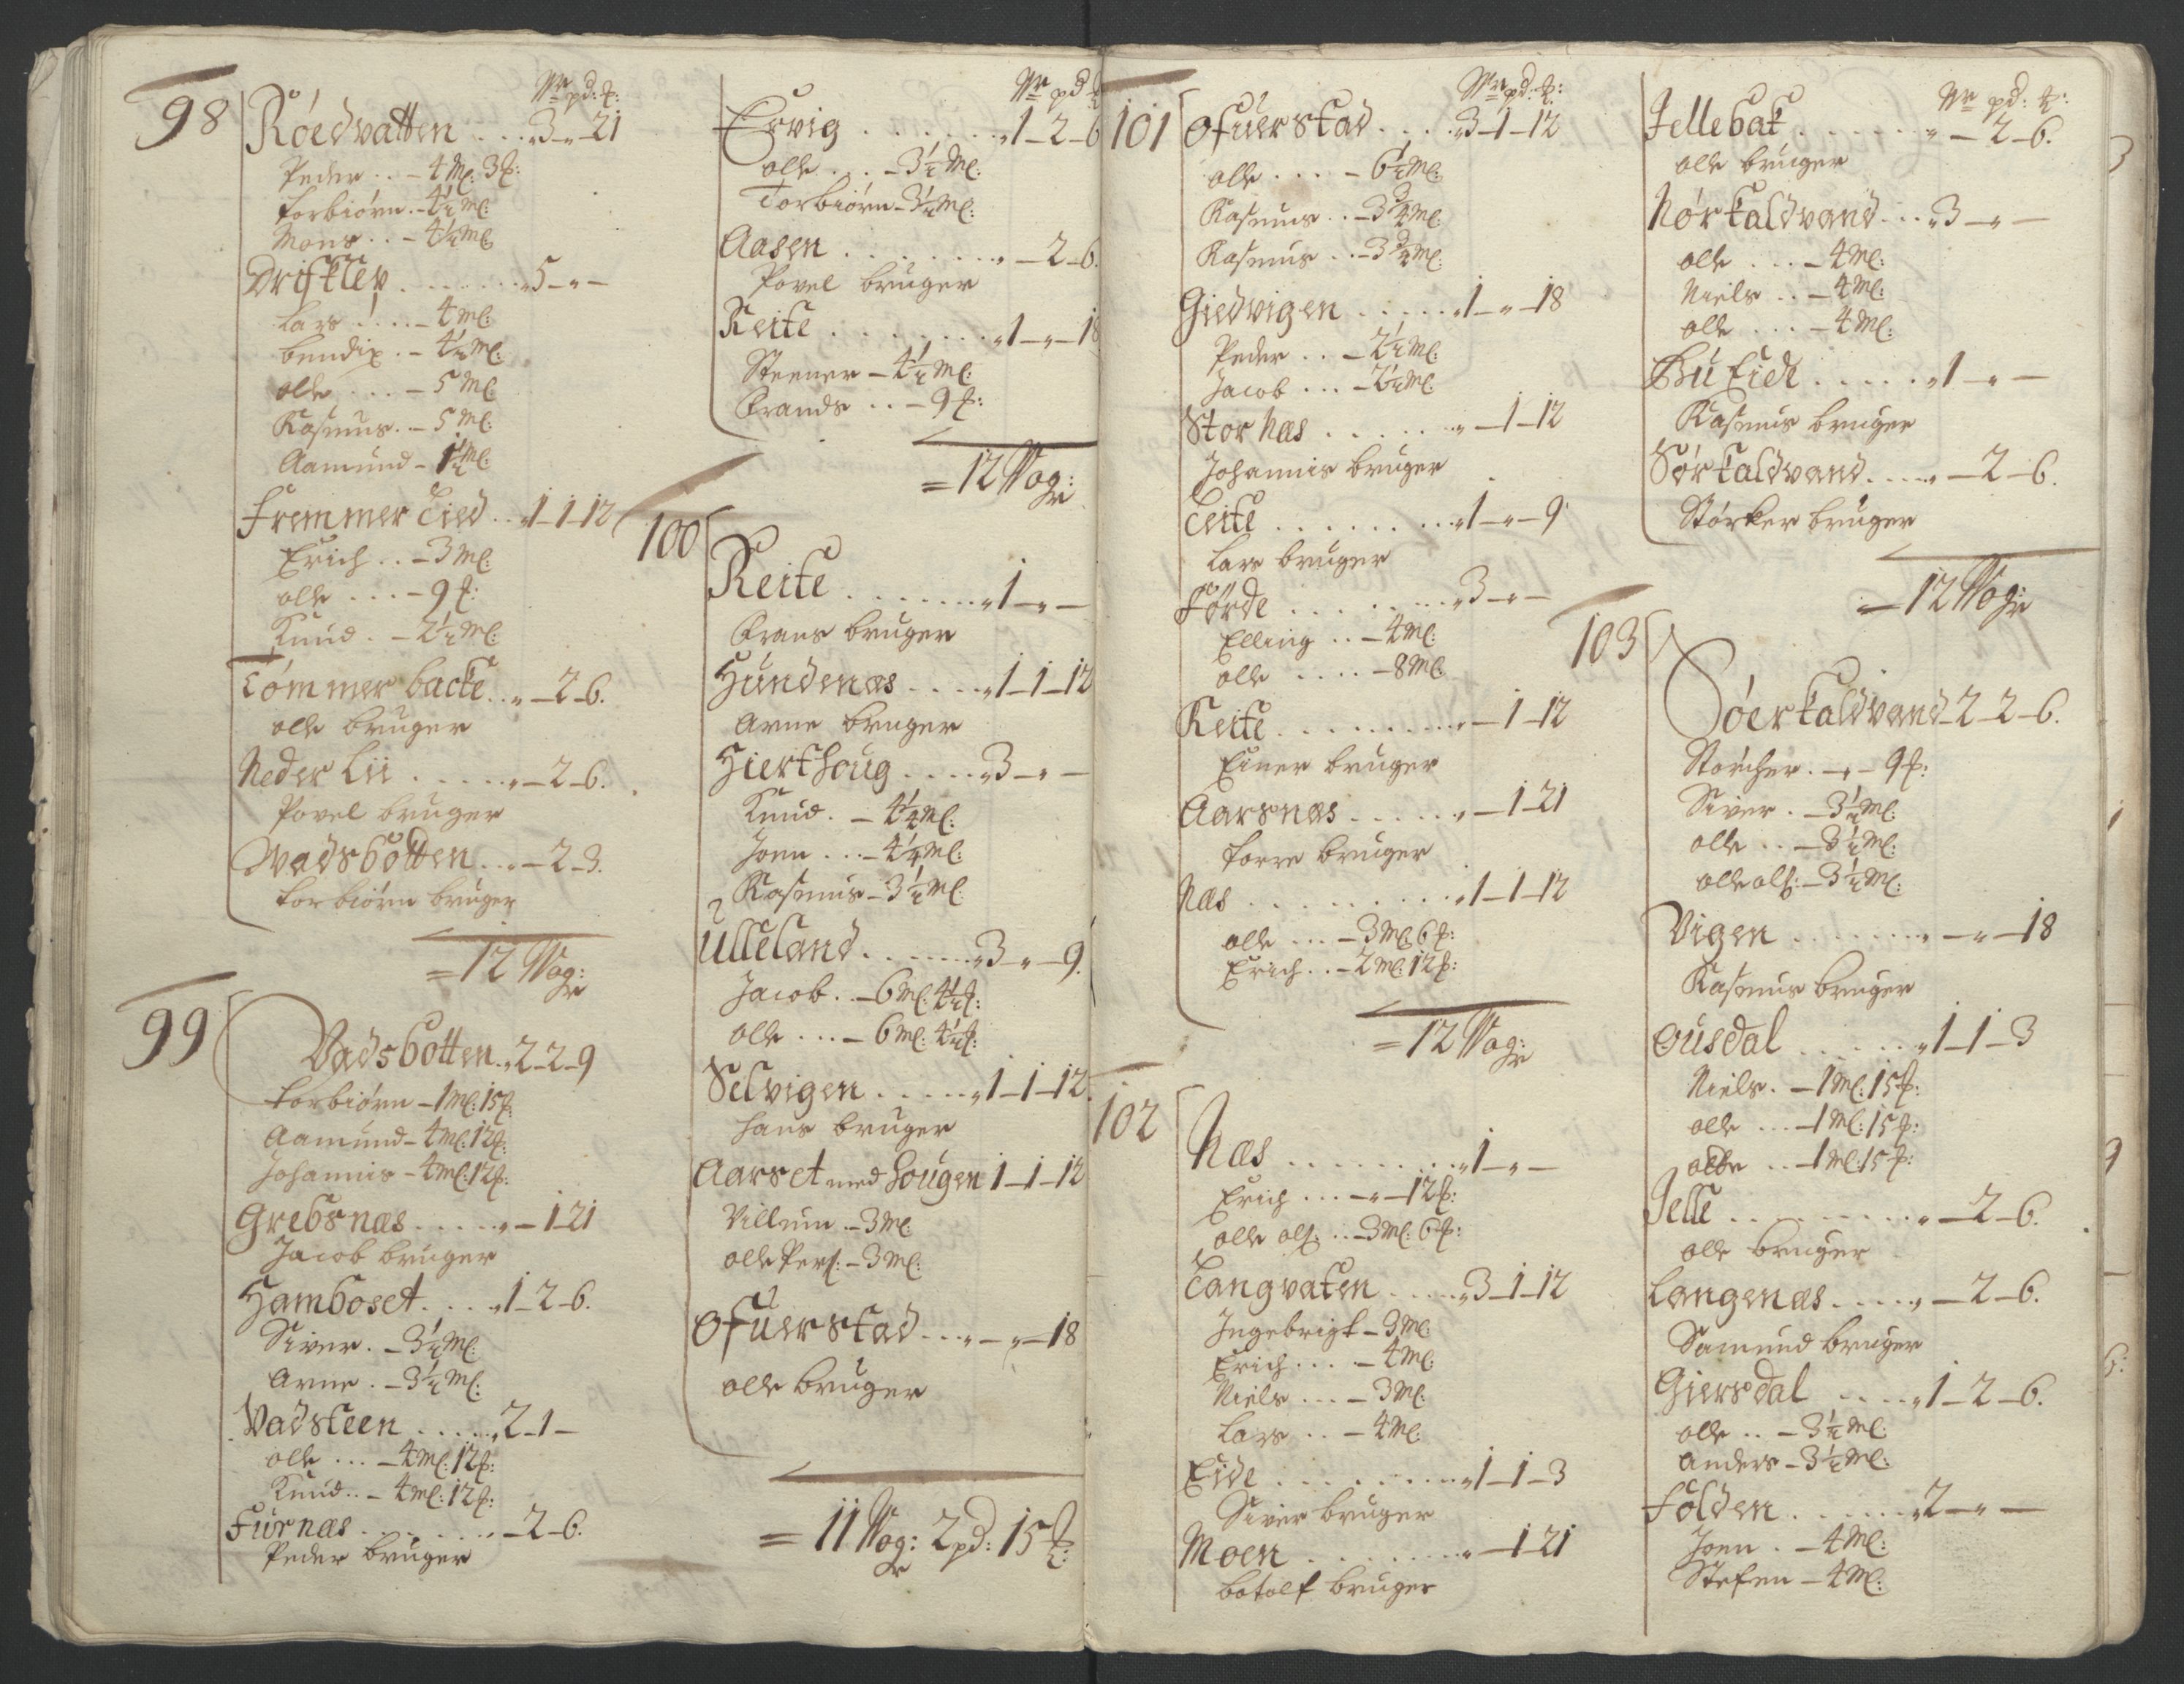 98
Wr pd: ℔:
Róedvatten . . . 3 „ 21
Peder . . – 4 Ml: 3 ℔:
Torbiórn . – 4½ Ml:
Mons . . – 4½ Ml:
Drifklep . . . . . „ 5 – „ –
Lars . . . . – 4 Ml:
bendix . – 4½ Ml:
olle . . . – 5 Ml:
Rasmus . – 5 Ml:
Aamund – 1½ Ml:
Fremmer Eied . . „ 1 – 1 – 12
Erich . . – 3 Ml:
olle . . . – 9 ℔:
Knud . – 2½ Ml:
Tómmer backe . . „ – 2 – 6.
olle bruger
Neder Lii . . . . . „ – 2 – 6.
Povel bruger
Vadsbotten . . „ – 2 – 3.
Torbiórn bruger
= 12 Wogr:
99
Vadsbotten „ 2 – 2 – 9
Torbiórn – 1 Ml: 15 ℔:
Aamund – 4 Ml: 12 ℔:
Johannis – 4 Ml: 12 ℔:
Grebsnæs . . . . „ – 1 – 21
Jacob bruger
Hamboset . . . . „ 1 – 2 – 6.
Siver . – 3½ Ml:
Arne . – 3½ Ml:
Vadsteen . . . . „ 2 – 1 –
olle . . . – 4 Ml: 12 ℔:
Knud . . – 4 Ml: 12 ℔:
Furnæs . . . . . . „ – 2 – 6.
Peder bruger
Wr pd ℔
Ervig . . . . . . „ 1 – 2 – 6
olle . . . – 3½ Ml:
Torbiórn – 3½ Ml:
Aasen . . . . . . . „ – 2 – 6.
Povel bruger
Reite . . . . . . . „ 1 – „ – 18
Steener – 4½ Ml:
Frands . . – 9 ℔:
= 12 Wogr:
100
Reite . . . . . . „ 1 – „ –
Frans bruger
Hundenæs . . . . „ 1 – 1 – 12
Arne bruger
Hierthoug . . . . „ 3 – „ –
Knud . – 4¼ Ml:
Joen . . . – 4¼ Ml:
Rasmus – 3½ Ml:
Ulleland . . . . . „ 3 – „ – 9.
Jacob . . – 6 Ml: 4½ ℔:
olle . . . – 6 Ml: 4½ ℔:
Selvigen . . . . . „ 1 – 1 – 12.
Hans bruger
Aarset med Hougen 1 – 1 – 12
Villum . – 3 Ml:
olle Pers: – 3 Ml:
Ofuerstad . . . „ – „ – 18
olle bruger
= 11 Wogr: 2 pd: 15 ℔:
101
Wr pd: ℔:
Ofuerstad . . . . „ 3 – 1 – 12
olle . . . . – 6½ Ml:
Rasmus . . – 3¾ Ml:
Rasmus . . – 3¾ Ml:
Giedvigen . . . . . „ 1 – „ – 18
Peder . . – 2½ Ml:
Jacob . . . – 2½ Ml:
Stor Næs . . . . . „ – 1 – 12
Johannis bruger
Teite . . . . . . . . „ 1 – „ – 9
Lars bruger
Fórde . . . . . . . „ 3 – „ –
Elling . . – 4 Ml:
olle . . . . – 8 Ml:
Reite . . . . . . . . „ – 1 – 12
Einer bruger
Aarsnæs . . . . . „ – 1 – 21
Torre bruger
Næs . . . . . . . . . „ 1 – 1 – 12
olle . . . – 3 Ml: 6 ℔:
Erich . . – 2 Ml: 12 ℔:
= 12 Wogr:
102
Næs . . . . . . . . „ 1 – „ –
Erich . . . – „ – 12 ℔:
olle ols: . . – 3 Ml: 6 ℔:
Langvaten . . . . „ 3 – 1 – 12
Ingebrigt – 3 Ml:
Erich . . . . – 4 Ml:
Niels . . . – 3 Ml:
Lars . . – 4 Ml:
Eide . . . . . . . . . „ 1 – 1 – 3
Siver bruger
Moen . . . . . . . . „ – 1 – 21
botolf bruger
Wr pd: ℔:
Jellebak . . . . . . „ – 2 – 6.
olle bruger
Nórkaldvand . . . „ 3 – „ –
olle . . . – 4 Ml:
Niels . . – 4 Ml:
olle . . . – 4 Ml:
Bu Eide . . . . . „ 1 – „ –
Rasmus bruger
Sórkaldvand . . . . „ – 2 – 6.
Stórker bruger
= 12 Wogr:
103
Sóerkaldvand – 2 – 2 – 6.
Stórcher . – „ – 9 ℔:
Siver . – 3½ Ml:
olle . . – 3½ Ml:
olle ols: – 3½ Ml:
Vigen . . . . . . . „ – „ – 18
Rasmus bruger
Ousdal . . . . . . „ 1 – 1 – 3
Niels . – 1 Ml: 15 ℔:
olle . . . – 1 Ml: 15 ℔:
olle . . – 1 Ml: 15 ℔:
Jelle . . . . . . . . „ – 2 – 6.
olle bruger
Langenæs . . . . „ – 2 – 6.
Samund bruger
Giersdal . . . . „ 1 – 2 – 6.
olle . . – 3½ Ml:
Anders – 3½ Ml:
Folden . . . . . . „ 2 – „ –
Joen . – 4 Ml:
Stefen – 4 Ml: